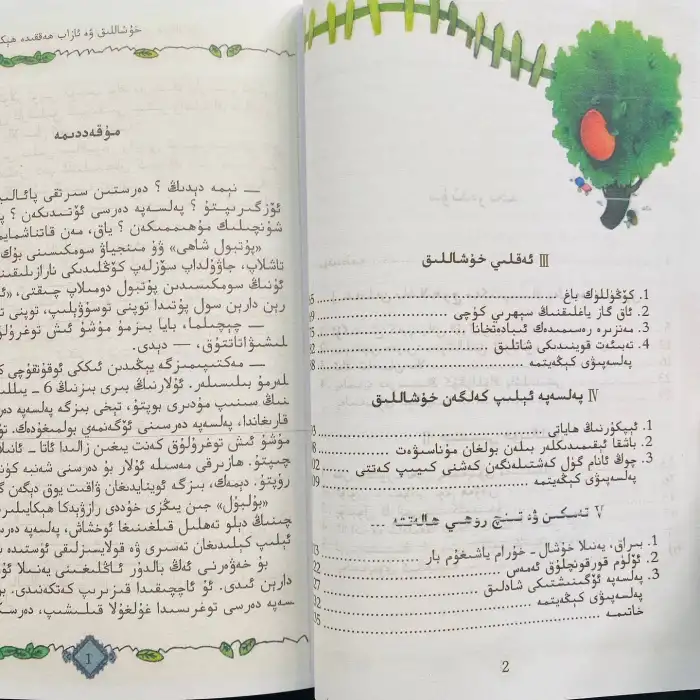 خۇشاللىق ۋە ئازاب ھەققىدە
مۇقەددىمە
— نېمە دېدىڭ ؟ دەرستىن سىرتقى پائالىيـ
ئۆزگىرىپتۇ ؟ پەلسەپە دەرسى ئۆتىدىكەن ؟
شۇنچىلىك مۇھىممىكەن ؟ ياق، مەن قاتناشمايمـ
«پۇتبول شاھى» ۋۇ مىنجياۋ سومكىسىنى
تاشلاپ، جاۋۇلداپ سۆزلەپ كۆڭلىدىكى نارازىلىقىنـ
ئۇنىڭ سومكىسىدىن پۇتبول دومىلاپ چىقتى،
رېن دارېن سول پۇتىدا توپنى توسۇۋېلىپ، توپنى
— چېچىلما، بايا بىزمۇ مۇشۇ ئىش توغرۇلۇق
لىشىۋاتاتتۇق، — دېدى.
— مەكتىپىمىزگە يېڭىدىن ئىككى ئوقۇتقۇچى
لەرمۇ بىلىسىلەر. ئۇلارنىڭ بىرى بىزنىڭ 6 ـ يىللىـ
نىڭ سىنىپ مۇدىرى بوپتۇ، تېخى بىزگە پەلسەپە
قارىغاندا، پەلسەپە دەرسىنى ئۆگەنمەي بولمىغۇدەك.
مۇشۇ ئىش توغرۇلۇق كەنت يىغىن زالىدا ئاتا ـ ئانىلار
چىپتۇ. ھازىرقى مەسىلە ئۇلار بۇ دەرسنى شەنبە كۈنـ
رۇپتۇ. دېمەك، بىزگە ئوينايدىغان ۋاقىت يوق دېگەن
«بۇلبۇل» جىن يىڭزى خۇددى رازۋېدكا ھېكايىلىرىـ
چىنىڭ دېلو تەھلىل قىلغىنىغا ئوخشاش، پەلسەپە
ئېلىپ كېلىدىغان تەسىرى ۋە قولايسىزلىقى ئۈستىدە
بۇ خەۋەرنى ئەڭ بالدۇر ئاڭلىغىنى يەنىلا
دارېن ئىدى. ئۇ ئاچچىقىدا قىزىرىپ كەتكەنىدى.
سەپە دەرسى توغرىسىدا غۇلغۇلا قىلىشىپ،
1
III ئەقلىي خۇشاللىق
1. كۆڭۈللۈك باغ
2. ئاق گاز ياغلىقنىڭ سېھرىي كۈچى
3. مەنزىرە رەسىمىدەك ئىبادەتخانا
4. تەبىئەت قوينىدىكى شاتلىق
پەلسەپىۋى كېڭەيتمە
IV پەلسەپە ئېلىپ كەلگەن خۇشاللىق
1. ئېپكۇرنىڭ ھاياتى
2. باشقا ئېقىمدىكىلەر بىلەن بولغان مۇناسىۋەت
3. چوڭ ئانام گۈل كەشتىلەنگەن كەشنى كىيىپ كەتتى
پەلسەپىۋى كېڭەيتمە
V تەسكىن ۋە تىنچ روھىي ھالەتتە ...
1. بىراق، يەنىلا خۇشال - خۇرام ياشىغۇم بار
2. ئۆلۈم قورقۇنچلۇق ئەمەس
3. پەلسەپە ئۆگىنىشتىكى شادلىق
پەلسەپىۋى كېڭەيتمە
خاتىمە
2